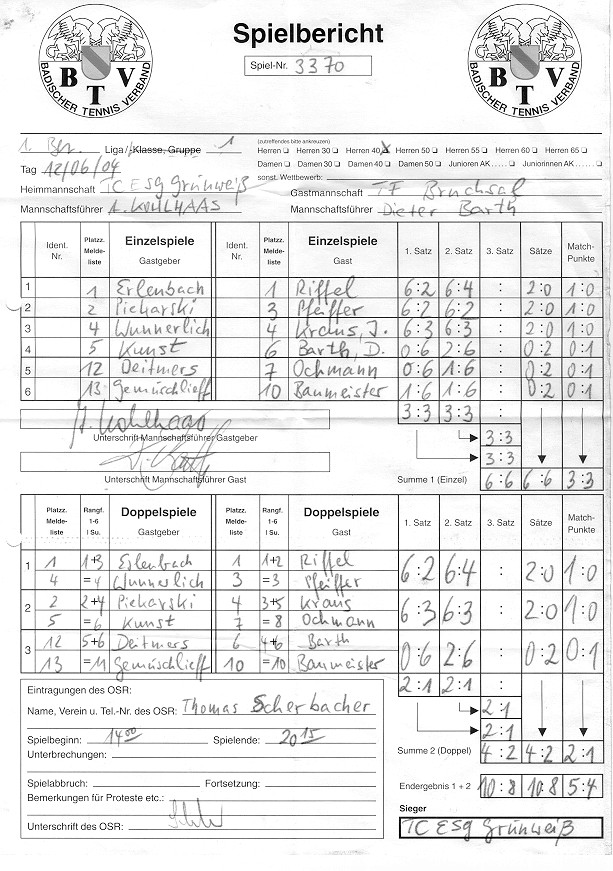 BADISCHER TENNIS VERBAND
BTV
Spielbericht
Spiel-Nr. 3370
BADISCHER TENNIS VERBAND
BTV
1. Bez. Liga/Klasse, Gruppe 1
(zutreffendes bitte ankreuzen)
Herren ❑ Herren 30 ❑ Herren 40 ☒ Herren 50 ❑ Herren 55 ❑ Herren 60 ❑ Herren 65 ❑
Damen ❑ Damen 30 ❑ Damen 40 ❑ Damen 50 ❑ Junioren AK..... ❑ Juniorinnen AK..... ❑
Tag 12/06/04 sonst. Wettbewerb:
Heimmannschaft TC ESG Grünweiß Gastmannschaft TF Bruchsal
Mannschaftsführer A. KOHLHAAS Mannschaftsführer Dieter Barth
Ident. Nr. Platzz. Melde- liste Einzelspiele Gastgeber Ident. Nr. Platzz. Melde- liste Einzelspiele Gast 1. Satz 2. Satz 3. Satz Sätze Match- Punkte
1 1 Erlenbach 1 Riffel 6:2 6:4 : 2:0 1:0
2 2 Piekarski 3 Pfeiffer 6:2 6:2 : 2:0 1:0
3 4 Wunnerlich 4 Kraus, J. 6:3 6:3 : 2:0 1:0
4 5 Kunst 6 Barth, D. 0:6 2:6 : 0:2 0:1
5 12 Deitmers 7 Ochmann 0:6 1:6 : 0:2 0:1
6 13 Gemüschlieff 10 Baumeister 1:6 1:6 : 0:2 0:1
3:3 3:3
A. Kohlhaas
Unterschrift Mannschaftsführer Gastgeber
3:3
3:3
Unterschrift Mannschaftsführer Gast
Summe 1 (Einzel) 6:6 6:6 3:3
Platzz. Melde- liste Rangf. 1-6 I Su. Doppelspiele Gastgeber Platzz. Melde- liste Rangf. 1-6 I Su. Doppelspiele Gast 1. Satz 2. Satz 3. Satz Sätze Match- Punkte
1 1 1+3 Erlenbach 1 1+2 Riffel 6:2 6:4 : 2:0 1:0
4 =4 Wunnerlich 3 =3 Pfeiffer
2 2 2+4 Piekarski 4 3+5 Kraus 6:3 6:3 : 2:0 1:0
5 =6 Kunst 7 =8 Ochmann
3 12 5+6 Deitmers 6 4+6 Barth 0:6 2:6 : 0:2 0:1
13 =11 Gemüschlieff 10 =10 Baumeister
2:1 2:1
Eintragungen des OSR:
Name, Verein u. Tel.-Nr. des OSR: Thomas Scherbacher
2:1
2:1
Spielbeginn: 14 00 Spielende: 20 15
Summe 2 (Doppel) 4:2 4:2 2:1
Unterbrechungen:
Spielabbruch: Fortsetzung:
Endergebnis 1 + 2 10:8 10:8 5:4
Bemerkungen für Proteste etc.:
Sieger
Unterschrift des OSR:
TC ESG Grünweiß